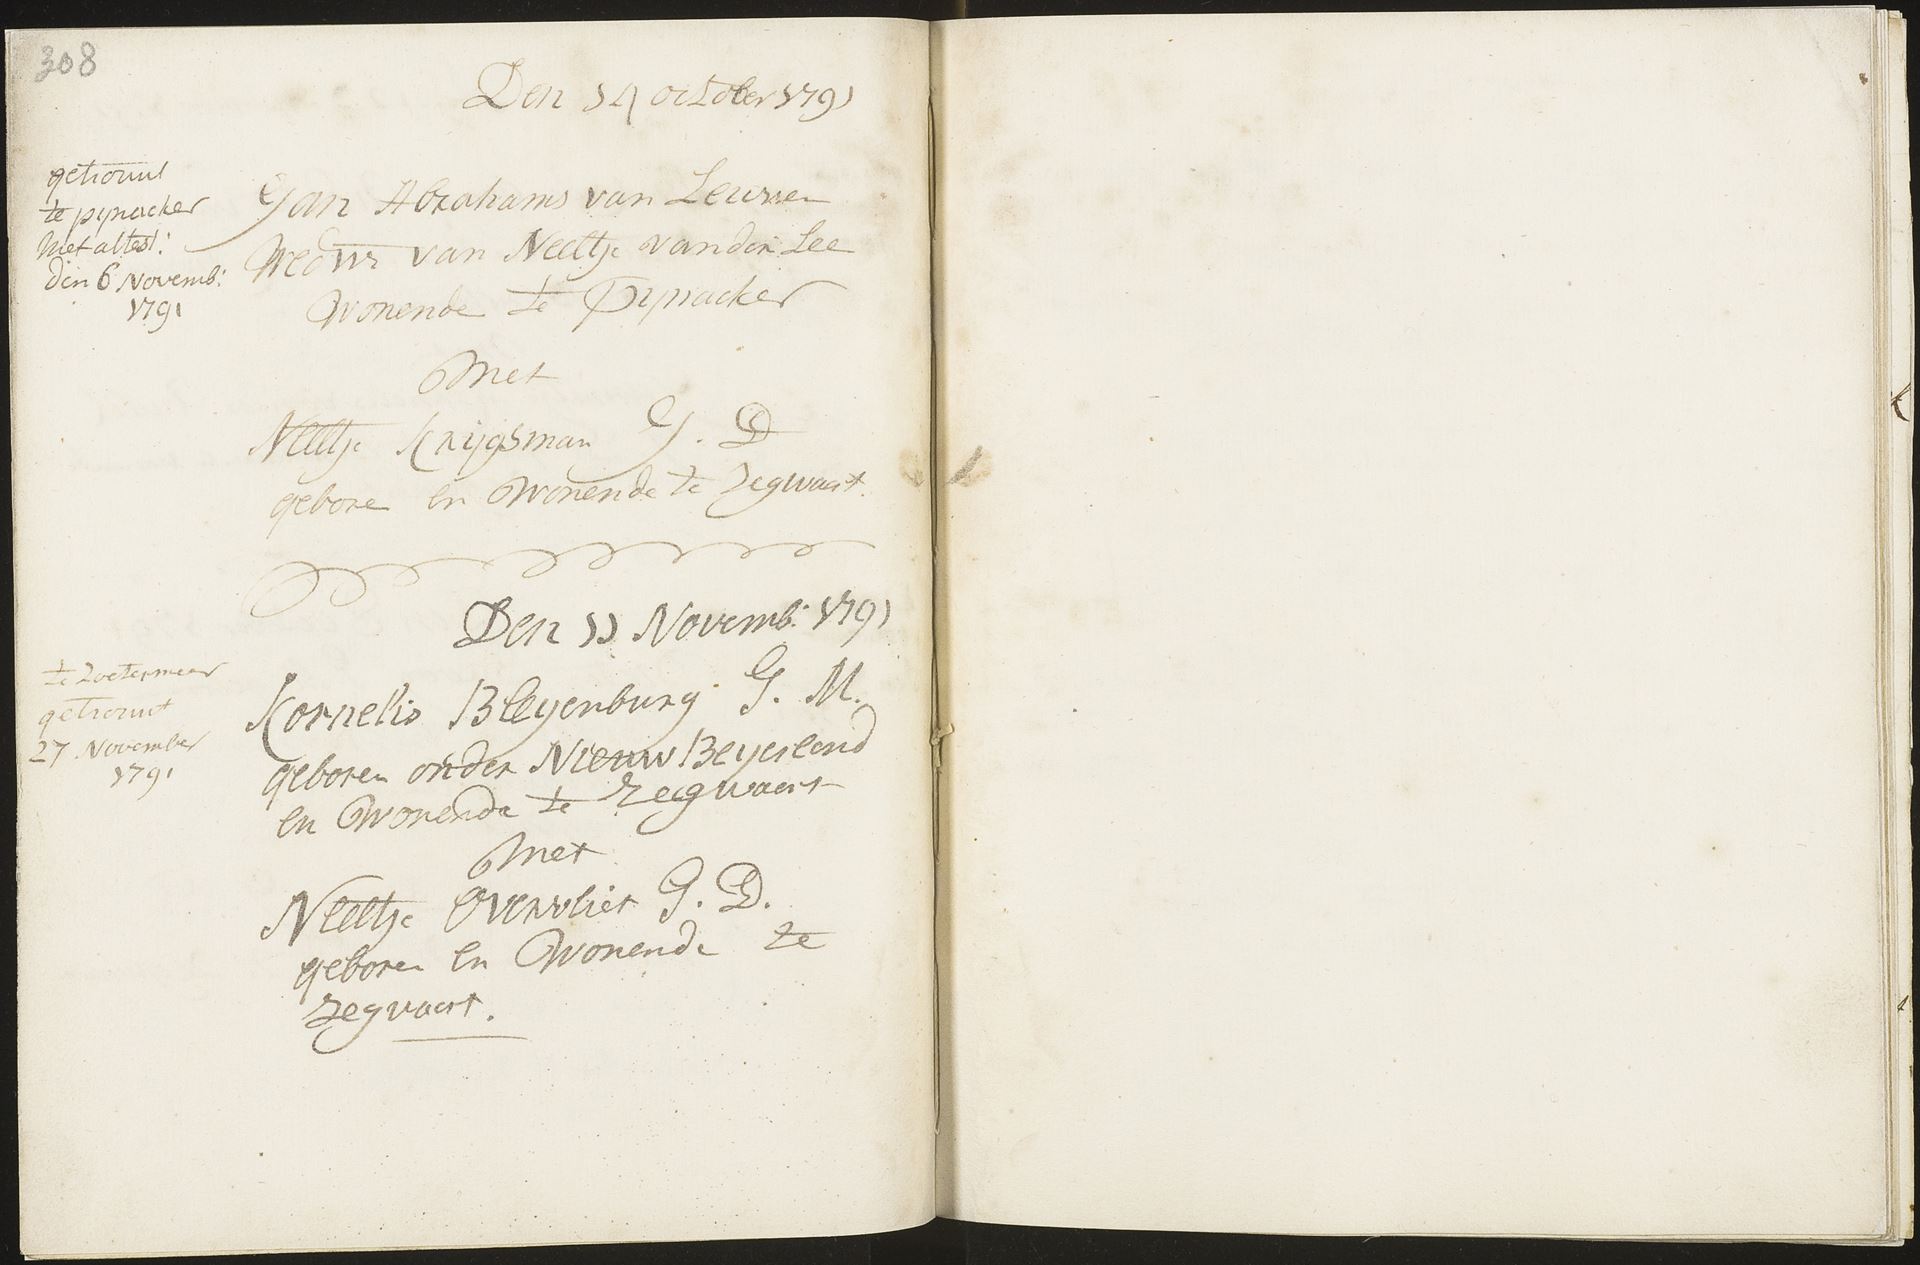 308
Den 14 october 1791
getrouwt
te pynacker
met attest:
den 6 Novemb:
1791
Jan Abrahams van Leuwen
Wedur van Neeltje van der Lee
Wonende te Pynacker
Met
Neeltje Krijgsman J. D
gebore en Wonende te Zegwaert
Den 11 Novemb: 1791
te Zoetermeer
getrouwt
27 November
1791
Kornelis Bleyenburg J. M.
geboren onder Nieuw Beyerlend
en Wonende te Zegwaert
Met
Neeltje Overvliet J. D.
geboren en Wonende te
Zegwaert.